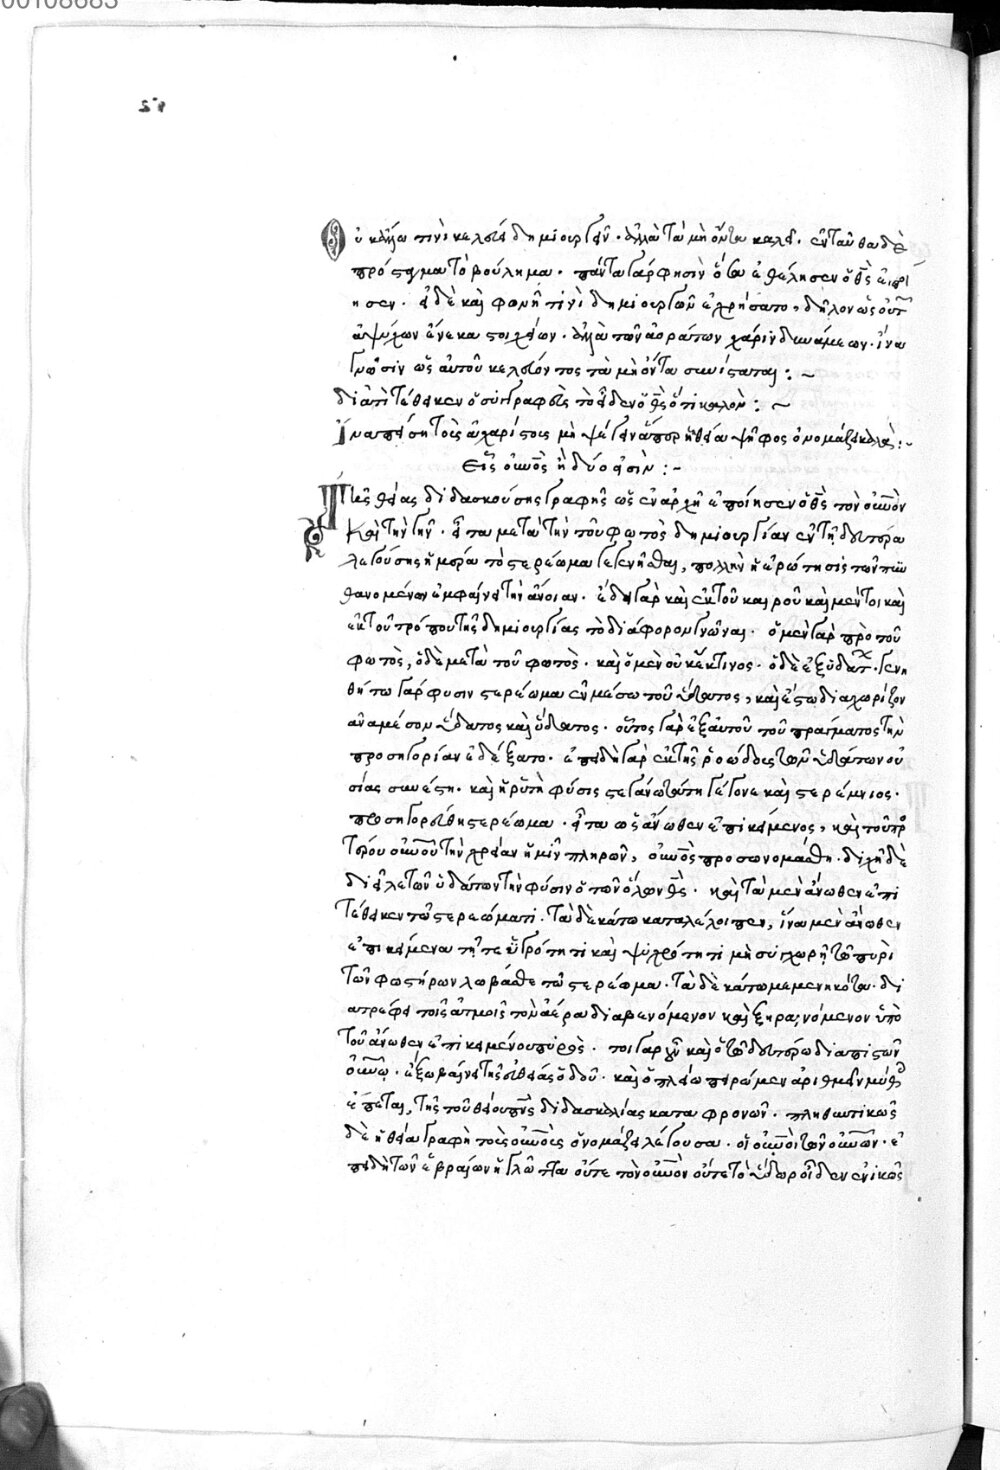 00108683
Οὐκ ἄλλω τινὶ κελεύει δημιουργεῖν. ἀλλὰ τὰ μὴ ὄντα καλεῖ. ἐνταῦθα δὲ
πρόσταγμα τὸ βούλημα. πάντα γάρ φησιν ὅσα ἠθέλησεν ὁ θς ἐποί
ησεν. εἰ δὲ καὶ φωνῆ τινὶ δημιουργῶν ἐχρήσατο, δῆλον ὡς οὐ τῶν
ἀψύχων ἕνεκα στοιχείων. ἀλλὰ τῶν ἀοράτων χάριν δυνάμεων. ἵνα
γνῶσιν ὡς αὐτοῦ κελεύοντος τὰ μὴ ὄντα συνίσταται :~
διατί τέθεικεν ὁ συγγραφεὺς τὸ εἶδεν ὁ θς ὅτι καλόν :~
Ἵνα πείση τοὺς ἀχαρίστους μὴ ψέγειν ἅπερ ἡ θεία ψῆφος ὀνομάζει καλά :~
Εἷς οὐνος ἢ δύο εἰσίν :~
Τῆς θείας διδασκούσης γραφῆς ὡς ἐν ἀρχῆ ἐποίησεν ὁ θς τὸν οὐνον
καὶ τὴν γῆν. εἶτα μετὰ τὴν τοῦ φωτὸς δημιουργίαν ἐν τῆ δευτέρα
λεγούσης ἡμέρα τὸ στερέωμα γεγενῆσθαι, πολλὴν ἡ ἐρώτησις τῶν πυν
θανομένων ἐμφαίνει τὴν ἄνοιαν. ἔδει γὰρ καὶ ἐκ τοῦ καιροῦ καὶ μέντοι καὶ
ἐκ τοῦ τρόπου τῆς δημιουργίας τὸ διάφορον γνῶναι. ὁ μὲν γὰρ πρὸ τοῦ
φωτὸς, ὁ δὲ μετὰ τοῦ φωτὸς. καὶ ὁ μὲν οὐκ ἔκ τινος. ὁ δὲ ἐξ ὑδάτ. γενη
θήτω γάρ φησιν στερέωμα ἐν μέσω τοῦ ὕδατος, καὶ ἔστω διαχωρίζον
ἀναμέσον ὕδατος καὶ ὕδατος. οὗτος γὰρ ἐξ αὐτοῦ τοῦ πράγματος τὴν
προσηγορίαν ἐδέξατο. ἐπειδὴ γὰρ ἐκ τῆς ῥοώδους τῶν ὑδάτων οὐ
σίας συνέστη. καὶ ἡ ῥυτὴ φύσις στεγανωτάτη γέγονε καὶ στερέμνιος.
προσηγορεύθη στερέωμα. εἶτα ὡς ἄνωθεν ἐπικείμενος, καὶ τοῦ προ
τέρου οὐνοῦ τὴν χρείαν ἡμῖν πληρῶν, οὐνος προσωνομάσθη. διχῆ δὲ
διεῖλε τῶν ὑδάτων τὴν φύσιν ὁ τῶν ὅλων θς. καὶ τὰ μὲν ἄνωθεν ἐπι
τέθεικεν τῶ στερεώματι. τὰ δὲ κάτω καταλέλοιπεν, ἵνα μὲν ἄνωθεν
ἐπικείμενα τῆ τε ὑγρότητι καὶ ψυχρότητι μὴ συγχωρῆ τῶ πυρὶ
τῶν φωστήρων λωβᾶσθαι τῶ στερεώμα. τὰ δὲ κάτω μεμενηκότα. δι
ατρέφει τοῖς ἀτμοῖς τὸν ἀέρα διαβενόμενον καὶ ξηραινόμενον ὑπὸ
τοῦ ἄνωθεν ἐπικειμένου πυρός. τοιγαροῦν καὶ ὁ τῶ δευτέρω διαπιστῶν
οὐνῶ. ἔξω βαίνει τῆς εὐθείας ὁδοῦ. καὶ ὁ πλείω πειρώμενος ἀριθμεῖν μύθοις
ἕπεται, τῆς τοῦ θείου πνς διδασκαλίας καταφρονῶν. πληθυντικῶς
δὲ ἡ θεία γραφὴ τοὺς οὐνοὺς ὀνομάζει λέγουσα. οἱ οὐνοὶ τῶν οὐνῶν. ἐ
πειδὴ τῶν ἑβραίων ἡ γλῶττα οὔτε τὸν οὐνον οὔτε τὸ ὕδωρ οἶδεν ἑνικῶς